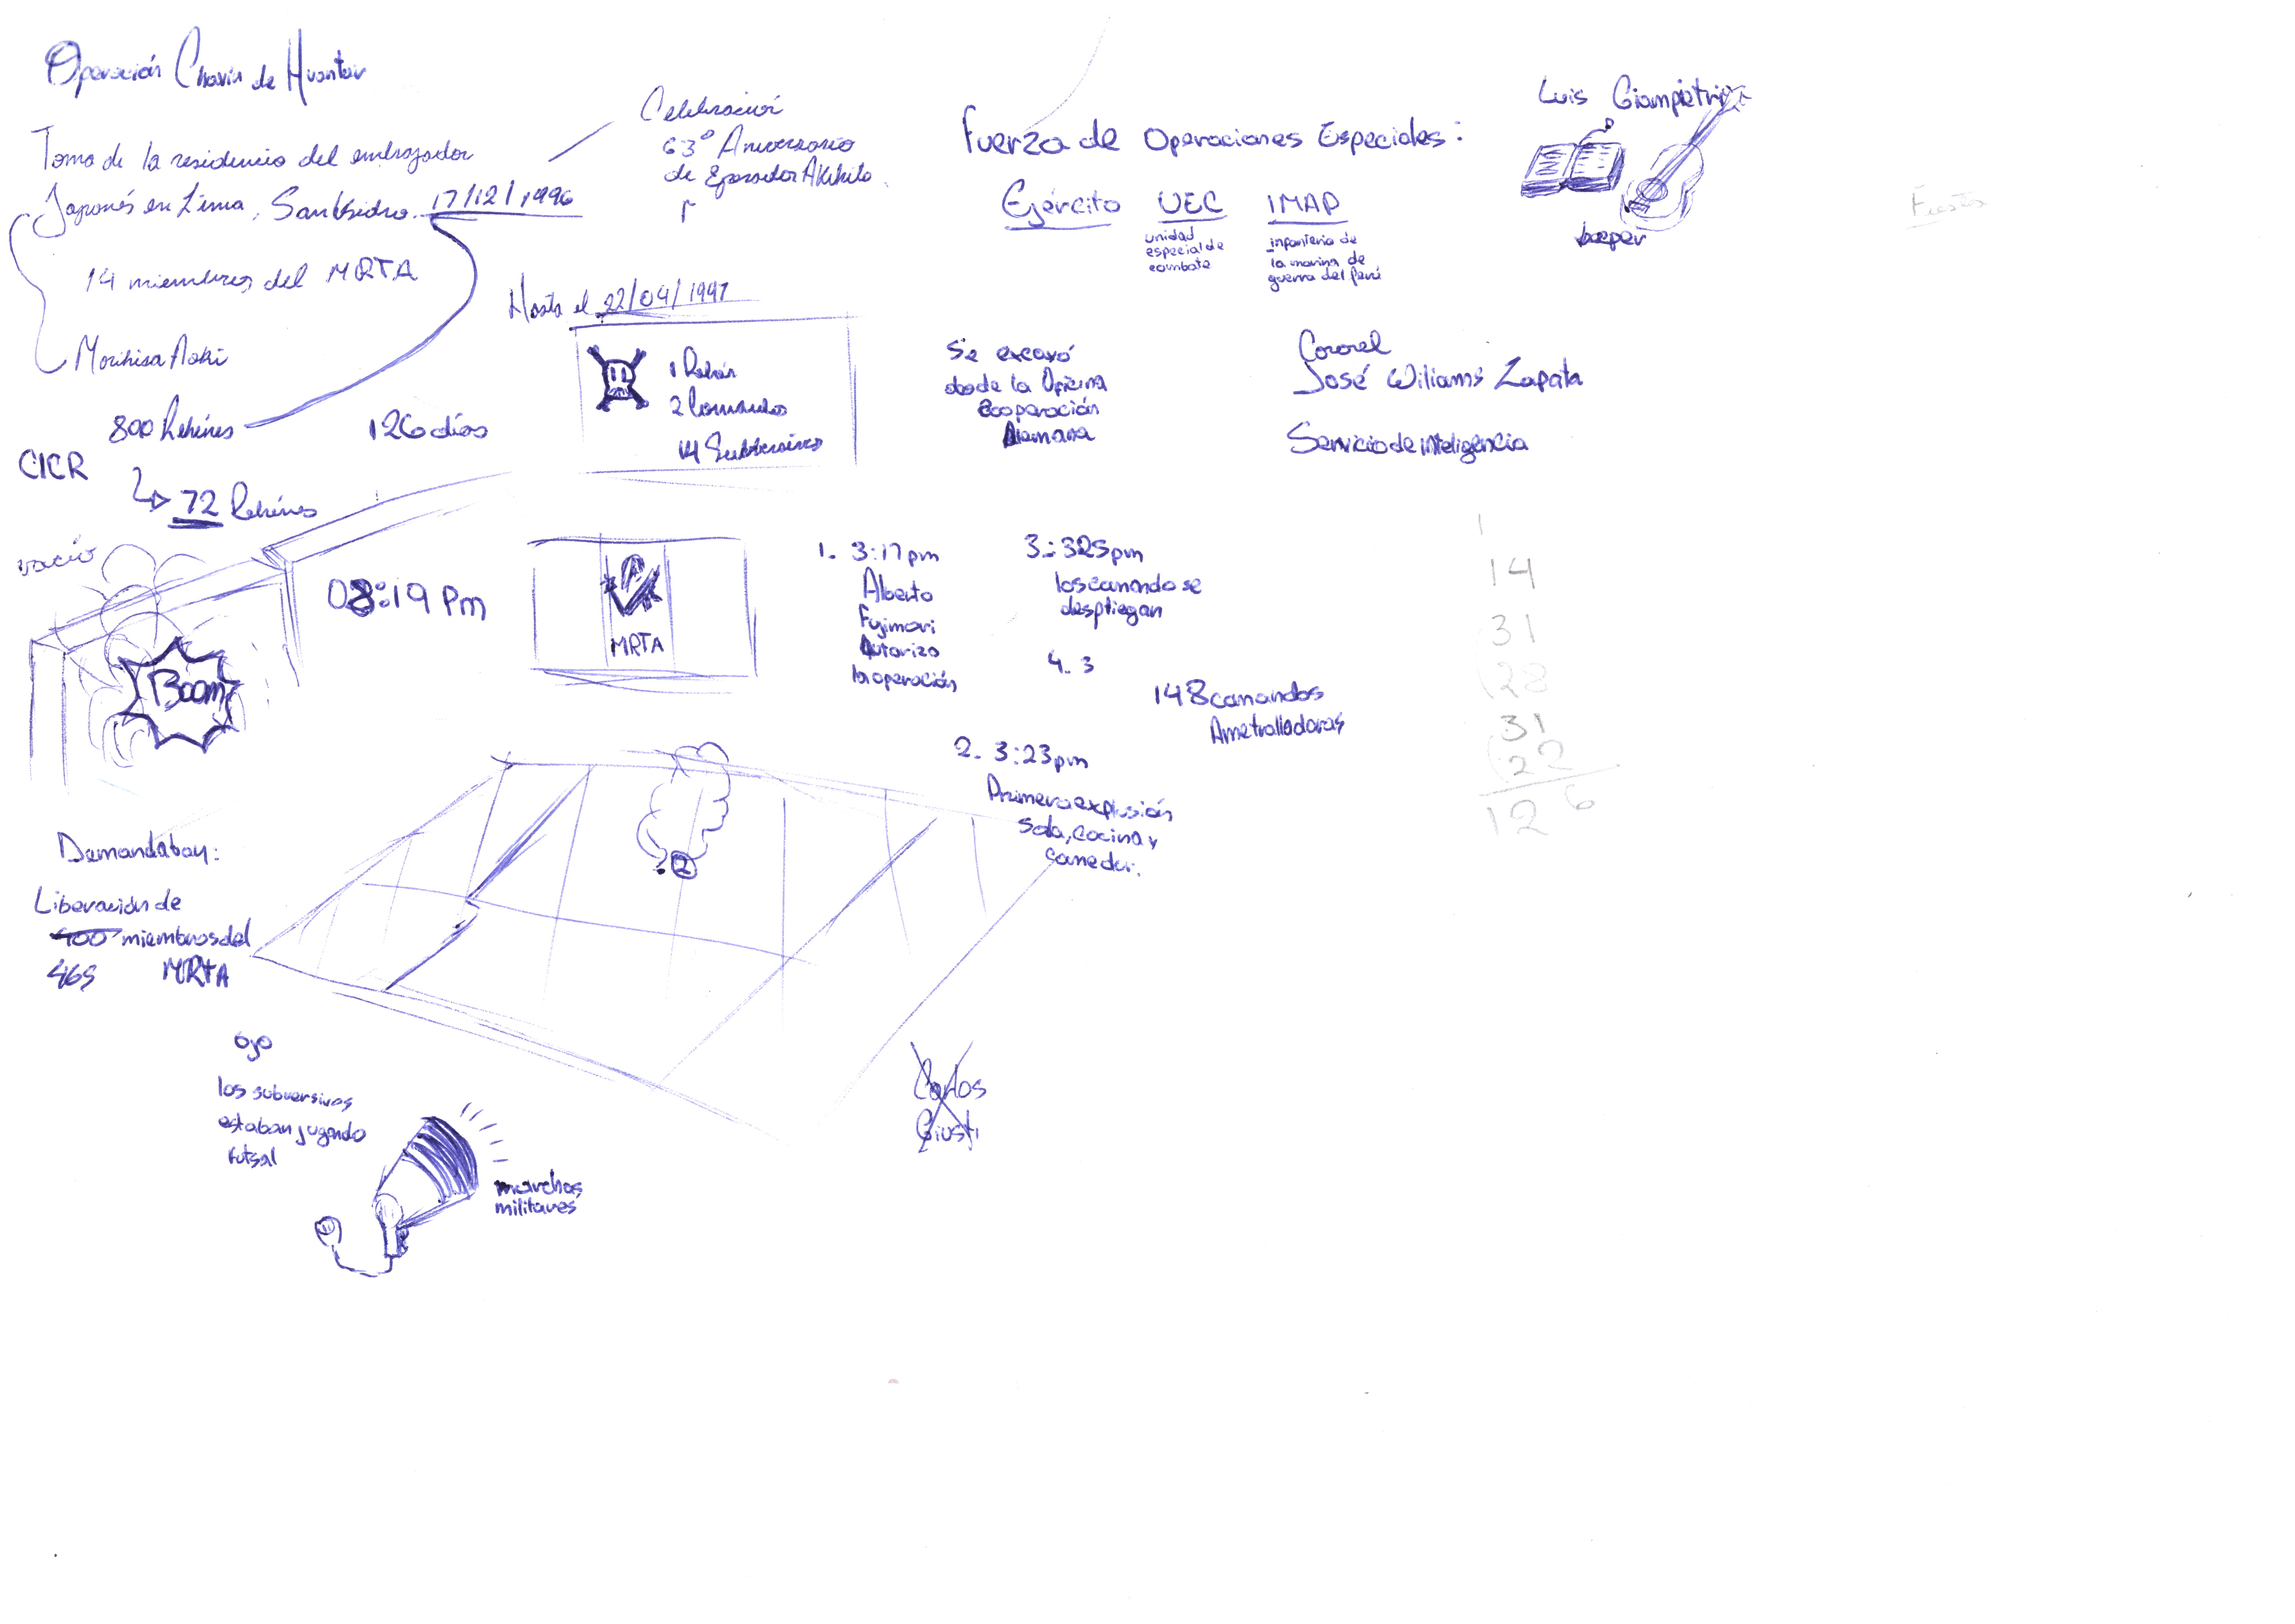 Operación Chavín de Huantar
Toma de la residencia del embajador
Japonés en Lima, San Isidro. 17/12/1996
14 miembros del MRTA
Morihisa Aoki
800 Rehénes
126 días
CICR
72 Rehénes
Celebración
63° Aniversario
de Akihito.
Hasta el 22/04/1997
1 Rehén
2 Comandos
14 Subversivos
Fuerza de Operaciones Especiales:
Ejército UEC IMAP
unidad
especial de
combate
infanteria de
la marina de
guerra del Perú
Luis Giampietri
beeper
Fiesta
Se excavó
desde la Oficina
Cooperación
Alemana
Coronel
José Wiliams Zapata
Servicio de inteligencia
vacío
Boom
03:19 Pm
MRTA
1- 3:17 pm
Alberto
Fujimori
Autorizo
la operación
3-: 325pm
los comando se
despliegan
4- 3
148 comandos
Ametralladoras
2- 3:23pm
Primera explosión
Sala, cocina y
comedor.
2
1
14
31
28
31
22
126
Demandaban:
Liberación de
400 miembros del
465 MRTA
ojo
los subversivos
estaban jugando
futsal
marchas
militares
Carlos
Giusti